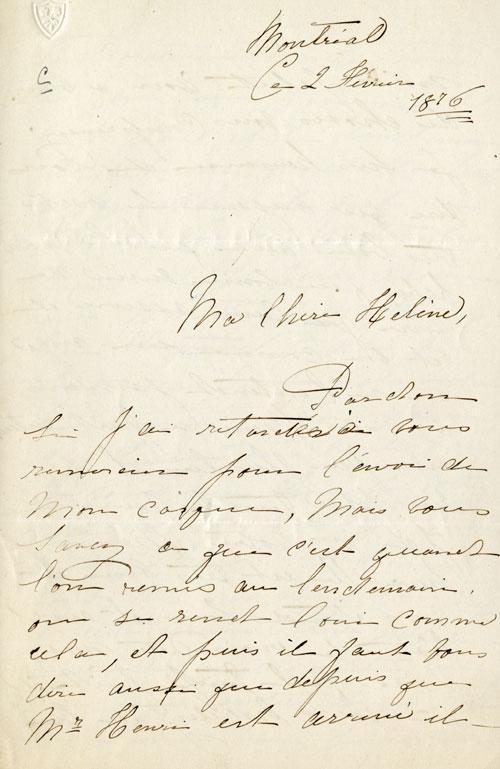 Montréal
Ce 2 Février
1876
Ma Chère Heline,
Pardon
Si j'ai retardé à vous
remercier pour l'envoi de
Mon casque, Mais vous
Savez ce que c'est quand
l'on remis au lendemain.
on se rend loin comme
cela, et puis il faut vous
dire aussi que depuis que
Mr Henri est arrivé il